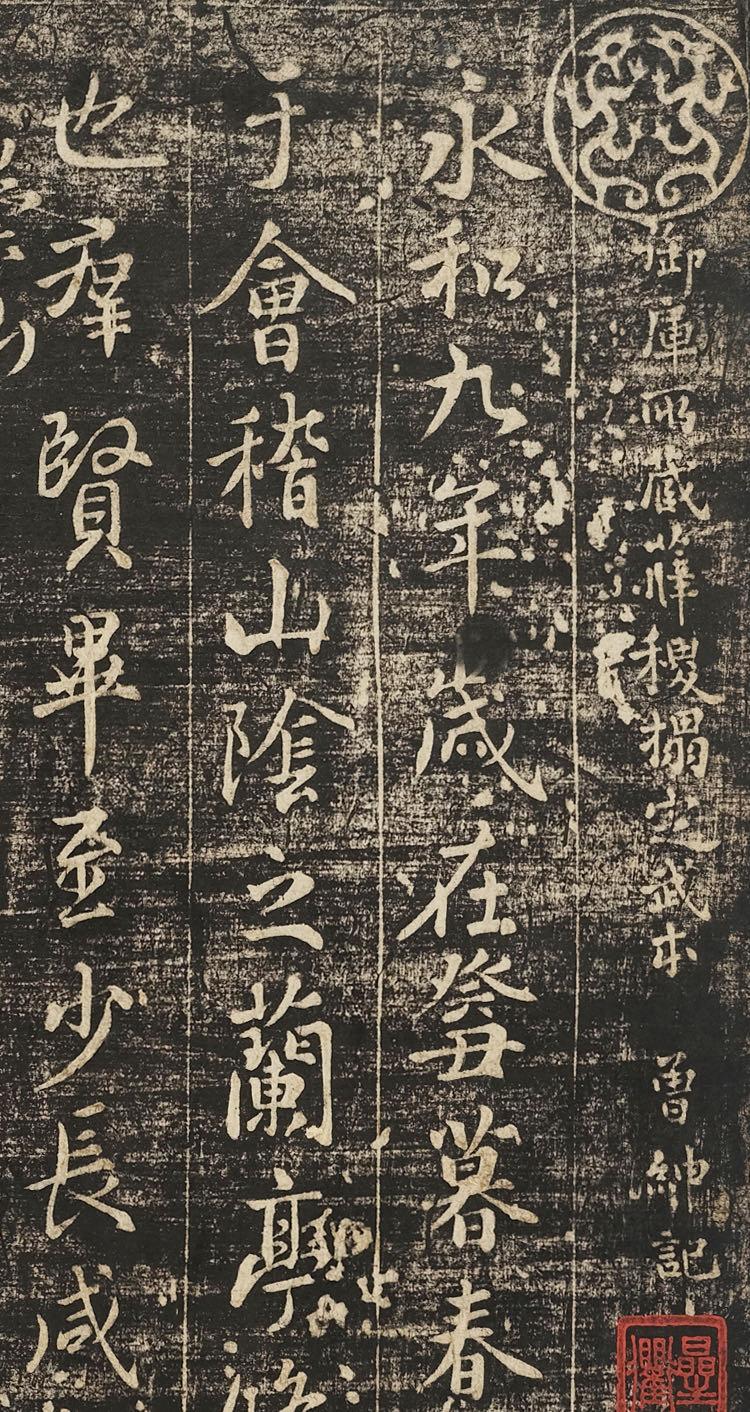 御庫所藏薛稷搨定武本 曾紳記
永和九年歲在癸丑暮春
于會稽山陰之蘭亭脩
也羣賢畢至少長咸